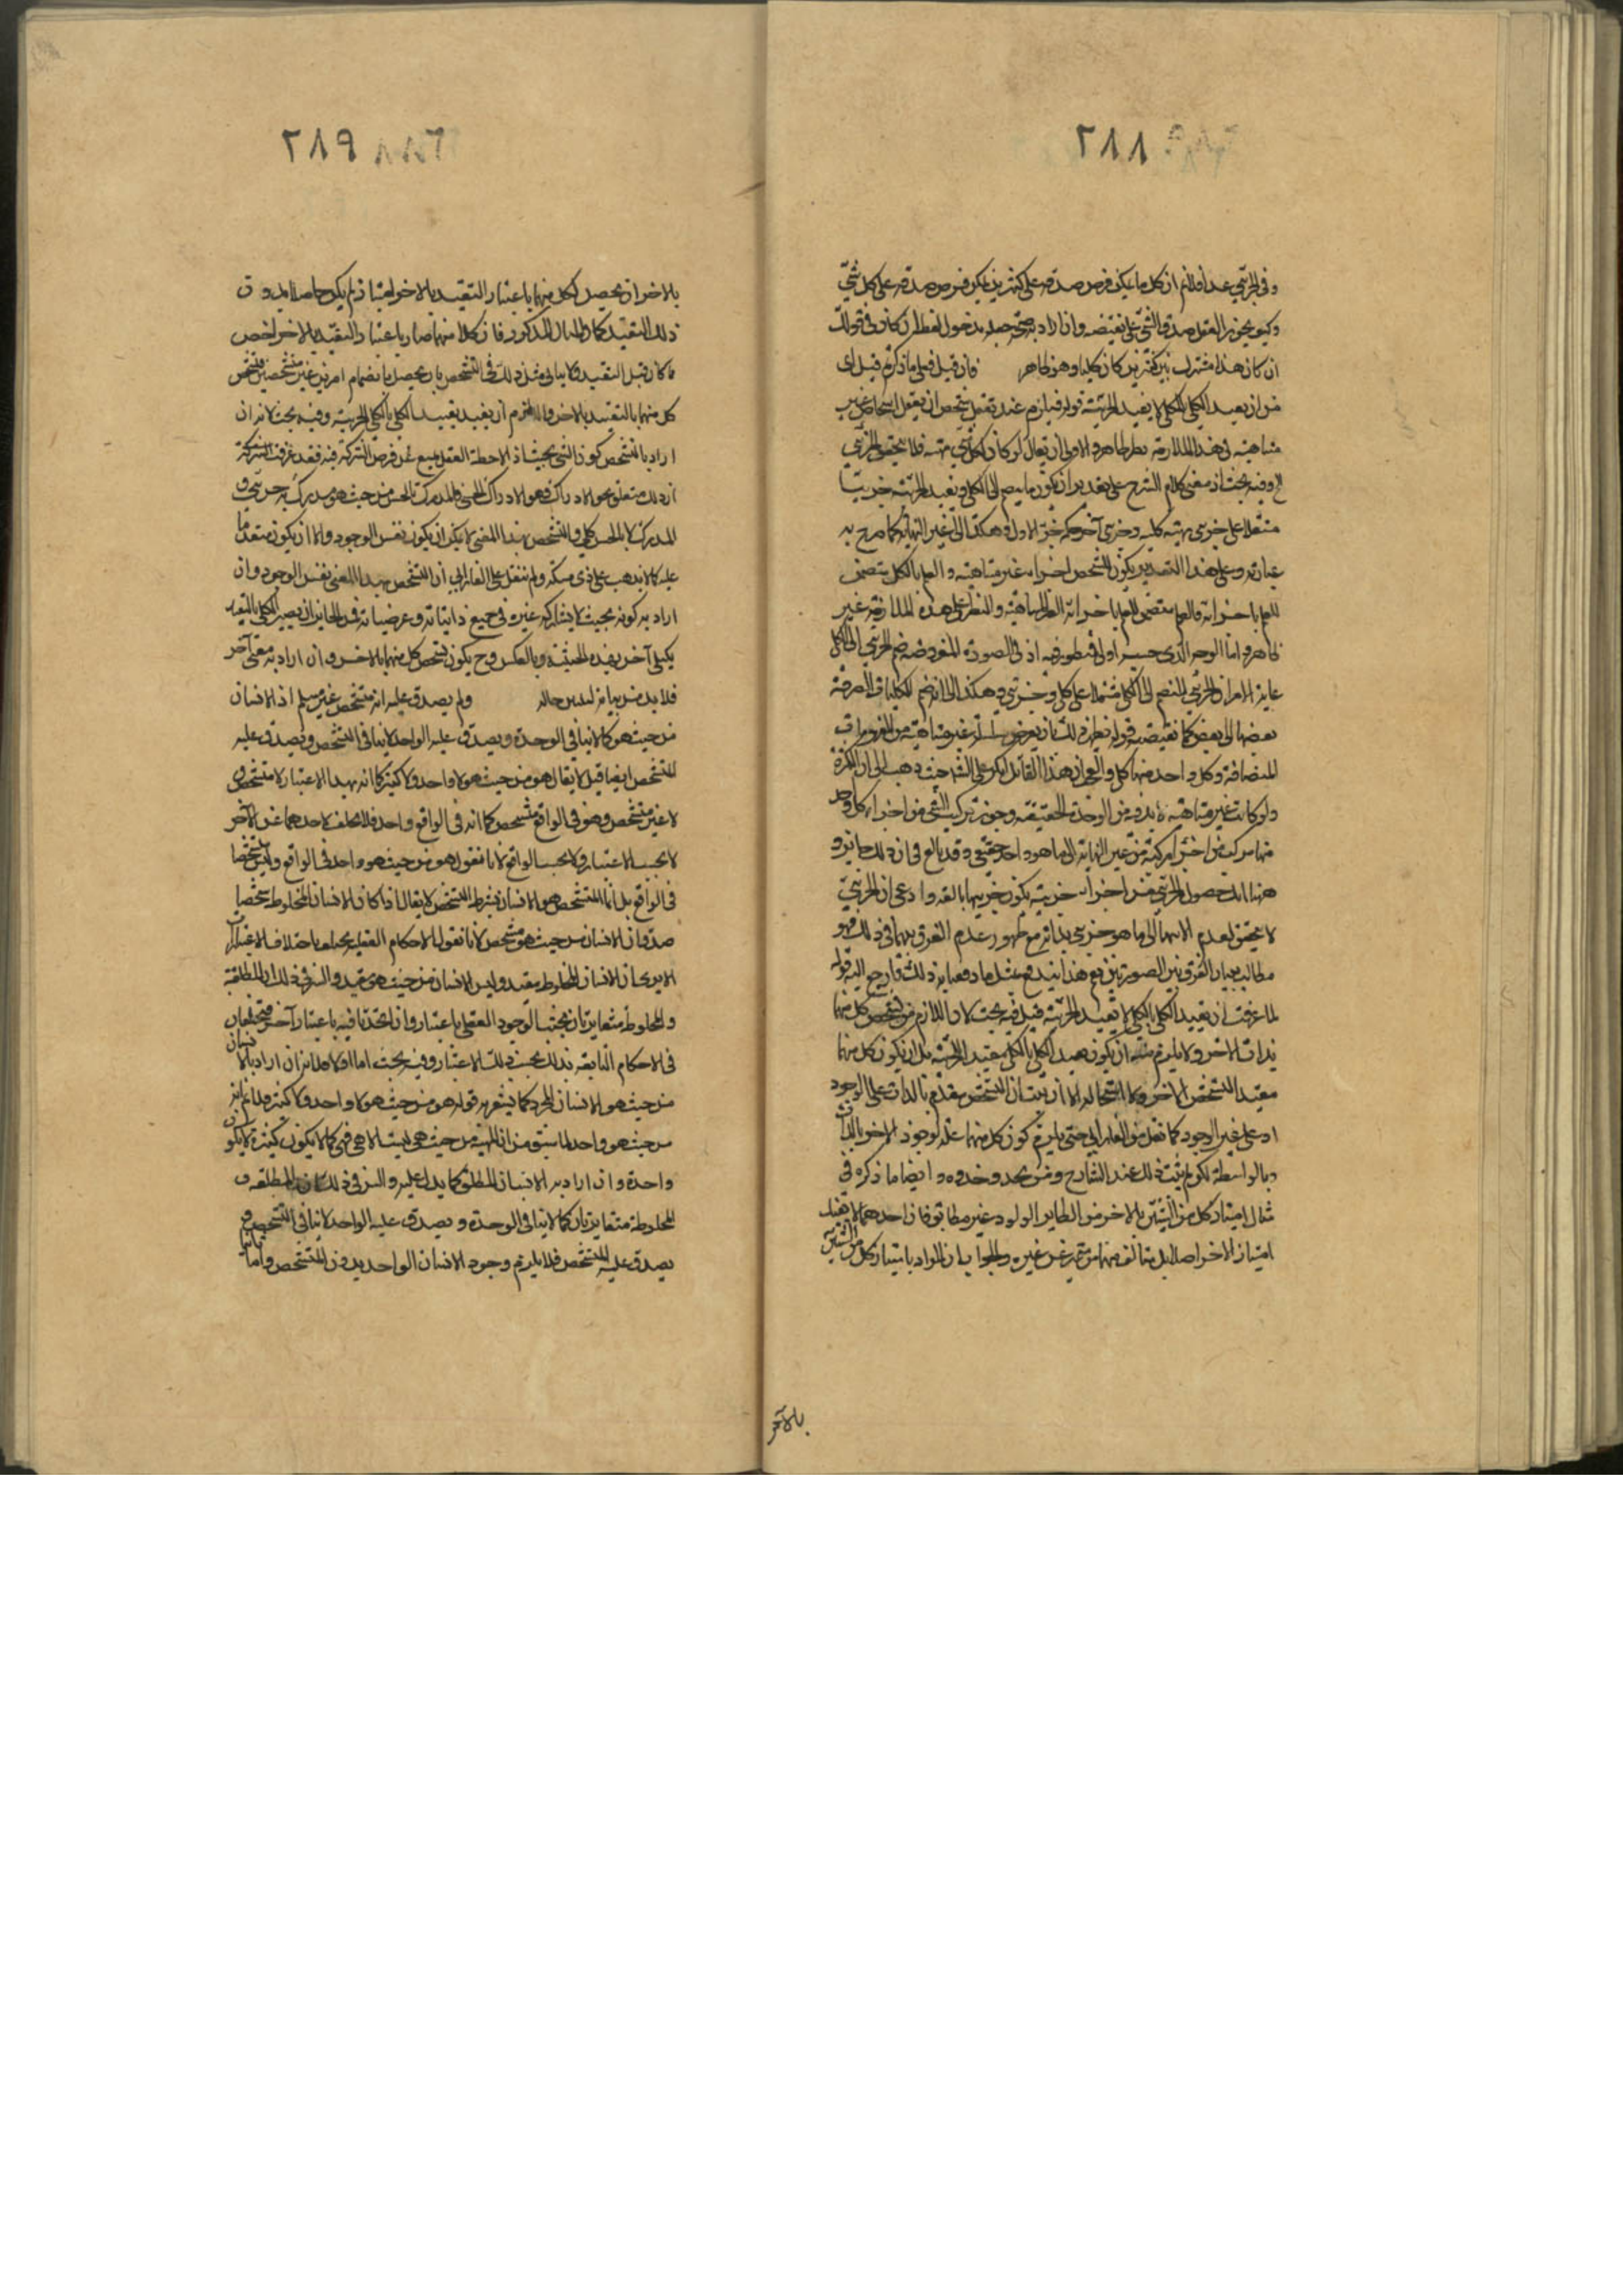 ٢٨٨
وفى الجزئى عندنا فلانم ان كل ما يمكن فرض صدقه على كثيرين يمكن فرض صدقه على كل شئ
وكيف يجوز العقل صدق الشئ على نقيضه وان اراد به صحة جعله مدخول لفظ ان كان فى قولك
ان كان هذا مشترك بين كثيرين كان كليا وهو ظاهر فان قيل فعلى ما ذكرتم قيل اى
من ان تقييد الكلى بالكلى لا يفيد الجزئية قوله فيلزم عند تعقل شخص ان يعقل اشخاص غير
متناهية فى هذه الملازمة نظر ظاهر والاولى ان يقال لو كان لكل شئ مهية فلا يتحقق الجزئى
وفيه بحث اذ معنى كلام الشرح على تقدير ان يكون ما ينضم الى الكلى ويفيد الجزئية جزئيا
مشتملا على جزئى مهية كلية وجزئى آخر حكمه حكم الاول وهكذا الى غير النهاية كما صرح به
عبارته وعلى هذا التقدير يكون للشخص اجزاء غير متناهية والعلم بالكل يتضمن
للعلم باجزائه فالعلم يتضمن للعلم باجزائه الغير المتناهية والنظر على هذه الملازمة غير
ظاهر واما الوجه الذى حسبه اولى فمنظور فيه اذ فى الصورة المفروضة ضم الجزئى الى الكلى
غاية الامر ان الجزئى المنضم الى الكلى مشتملا على كلى وجزئى وهكذا لا انضم الكليات الصرفة
بعضها الى بعض كما نقيضه قوله نظير ذلك ان يعرض سلسلة غير متناهية من الضرورات
المتضافة وكل واحد منها كلى والعجب ان هذا القائل انكر على الشارح حيث ذهب الى ان الكثرة
ولو كانت غير متناهية لا بد فيه من الوحدة الحقيقية وجوز تركيب الشئ من اجزاء كل واحد
منها مركب من اجزاء مركبة من غير النهاية الى ما هو واحد حقيقى وقد بالغ فى ان ذلك جائز و
ههنا انه حصول الجزئى من اجزاء جزئية يكون جزئيتها بالغير وادعى ان الجزئى
لا يتحقق لعدم الانتهاء الى ما هو جزئى بذاته مع ظهور عدم الفرق بينهما فى ذلك فهو
مطالب ببيان الفرق بين الصورتين نعم هذا يندفع بمثل ما دفعنا به ذلك فارجع اليه قوله
لما عرفت ان تقييد الكلى بالكلى لا يفيد الجزئية قيل فيه بحث لان اللازم من تشخص كل منهما
بذات الآخر ولا يلزم منه ان يكون تقييد الكلى بالكلى يفيد الجزئية بل ان يكون كل منهما
مفيد التشخص الآخر ولا استحالة الا ان يثبت ان التشخص مقدم بالذات على الوجود
او على غير الوجود كما نقل من الفارابى حتى يلزم كون كل منهما علة لوجود الآخر بالذات
وبالواسطة لكن لم يثبت ذلك عند الشارح ومن يحذو حذوه وايضا ما ذكره فى
مثال امتياز كل من الشيئين بالآخر من الطاير الولود غير مطابق فان احدهما لا يفيد
امتياز الآخر اصلا بل يتألف منهما متميز عن غيره والجواب ان المراد بامتياز كل من الشيئين
بالآخر
٢٨٩
بالآخر ان يحصل لكل منهما باعتبار التقييد بالآخر امتياز لم يكن حاصلا بدون
ذلك التقييد كما فى المثال المذكور فان كلا منهما صار باعتبار التقييد بالآخر اخص
مما كان قبل التقييد فكان مثل ذلك فى التشخص بان يحصل بانضمام امرين غير متشخصين تشخص
كل منهما بالتقييد بالآخر والا لزم ان يفيد تقييد الكلى بالكلى الجزئية وفيه بحث لانه ان
اراد بالتشخص كون الشئ بحيث اذا لاحظه العقل يمنع عن فرض الشركة فيه فقد عرفت الشركة
ان ذلك متعلق بنحو الادراك وهو الادراك الحسى فالمدرك بالحس من حيث هو مدرك به جزئى و
المدرك لا بالحس كلى والتشخص بهذا المعنى لا يمكن ان يكون نفس الوجود والا ان يكون متقدما
عليه كما لا يذهب على ذى مسكة ولم ينقل على الفارابى ان التشخص بهذا المعنى نفس الوجود وان
اراد به كونه بحيث لا يشاركه غيره فى جميع ذاتياته وعرضياته فمن الجائز ان يصير الكلى بالتقييد
بكلى آخر بهذه الحيثية وبالعكس وح يكون تشخص كل منهما بالآخر وان اراد به معنى آخر
فلا بد من بيانه لنبين حاله ولم يصدق عليه انه متشخص غير مسلم اذ الانسان
من حيث هو كما لا ينافى الوحدة ويصدق عليه الواحد لا ينافى التشخص ويصدق عليه
المتشخص ايضا قيل لا يقال هو من حيث هو لا واحد ولا كثير كما انه بهذا الاعتبار لا متشخص و
لا غير متشخص وهو فى الواقع متشخص كما انه فى الواقع واحد فلا يتخلف احدهما عن الآخر
لا بحسب الاعتبار ولا بحسب الواقع لانا نقول هو من حيث هو واحد فى الواقع وليس متشخصا
فى الواقع بل انما المتشخص هو الانسان بشرط التشخص لا يقال اذا كان الانسان المخلوط متشخصا
صدق ان الانسان من حيث هو متشخص لانا نقول الاحكام العقلية يختلف باختلاف الاعتبارات
الا يرى ان الانسان المخلوط مقيد وليس الانسان من حيث هو مقيد والسر فى ذلك ان المطلقة
والمخلوطة متغايرتان بحسب الوجود العقلى باعتبار وان اتحدتا فيه باعتبار آخر فيختلفان
فى الاحكام التابعة لذلك بحسب ذلك الاعتبار وفيه بحث اما اولا فلانه ان اراد بالانسان
من حيث هو الانسان المجرد كما يشعر به قوله هو من حيث هو لا واحد ولا كثير فلا نم انه
من حيث هو واحد لما سبق من ان المهية من حيث هى ليست الا هى فهى كما لا يكون كثيرة لا يكون
واحدة وان اراد به الانسان المطلق كما يدل عليه والسر فى ذلك ان المطلقة و
المخلوطة متغايرتان كما لا ينافى الوحدة ويصدق عليه الواحد لا ينافى التشخص و
يصدق عليه المتشخص فلا يلزم وجود الانسان الواحد بدون التشخص واما ثانيا